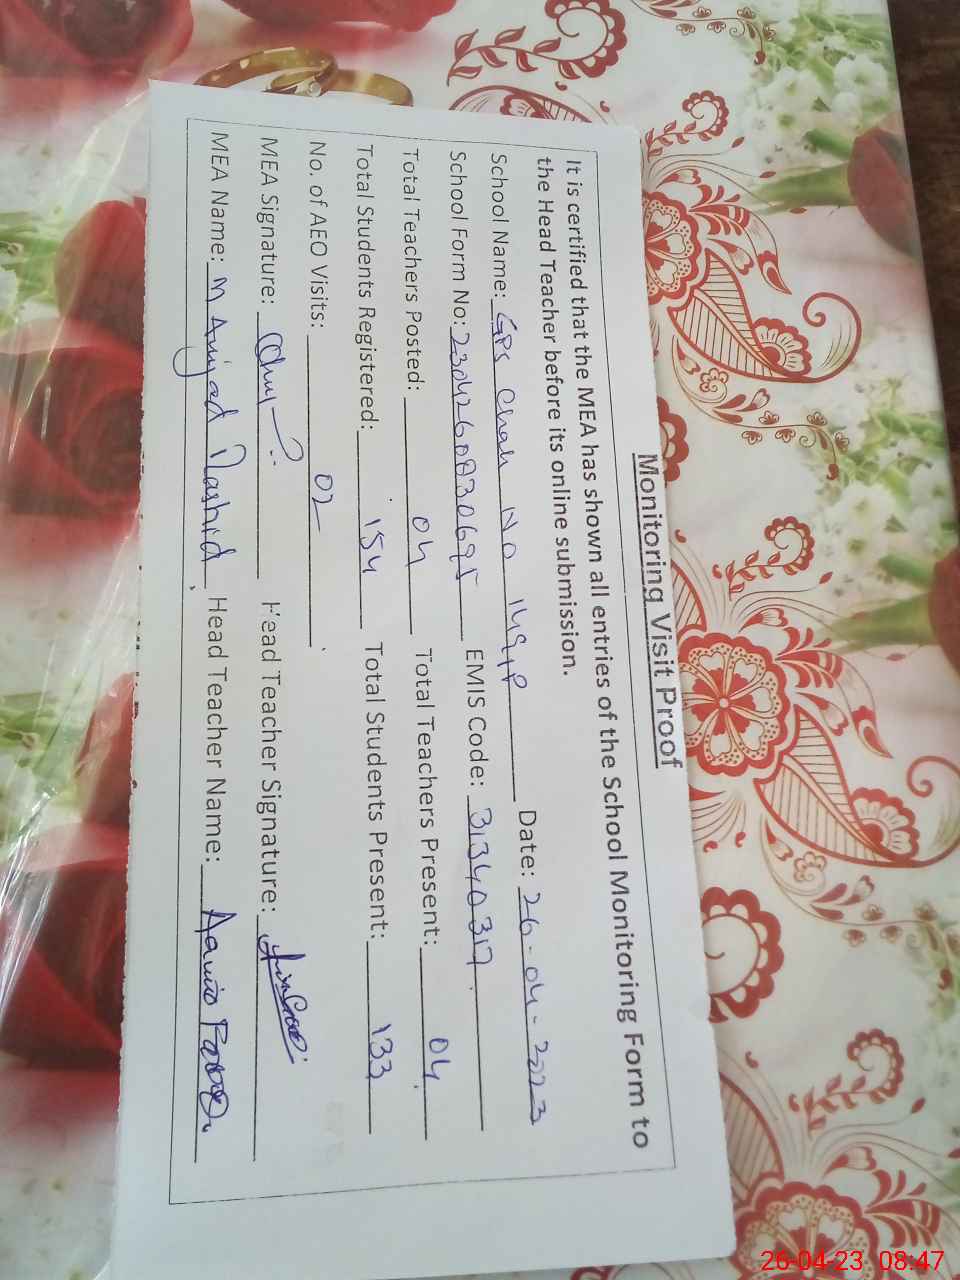 Monitoring Visit Proof
It is certified that the MEA has shown all entries of the School Monitoring Form to
the Head Teacher before its online submission.
School Name: GPS Chak No Date: 26-04-2023
School Form No: 23042608306 EMIS Code: 31340317
Total Teachers Posted: 04 Total Teachers Present: 04
Total Students Registered: 154 Total Students Present: 133
No. of AEO Visits: 02
MEA Signature: Head Teacher Signature:
MEA Name: M Amjad Rashid Head Teacher Name:
26-04-23 08:47